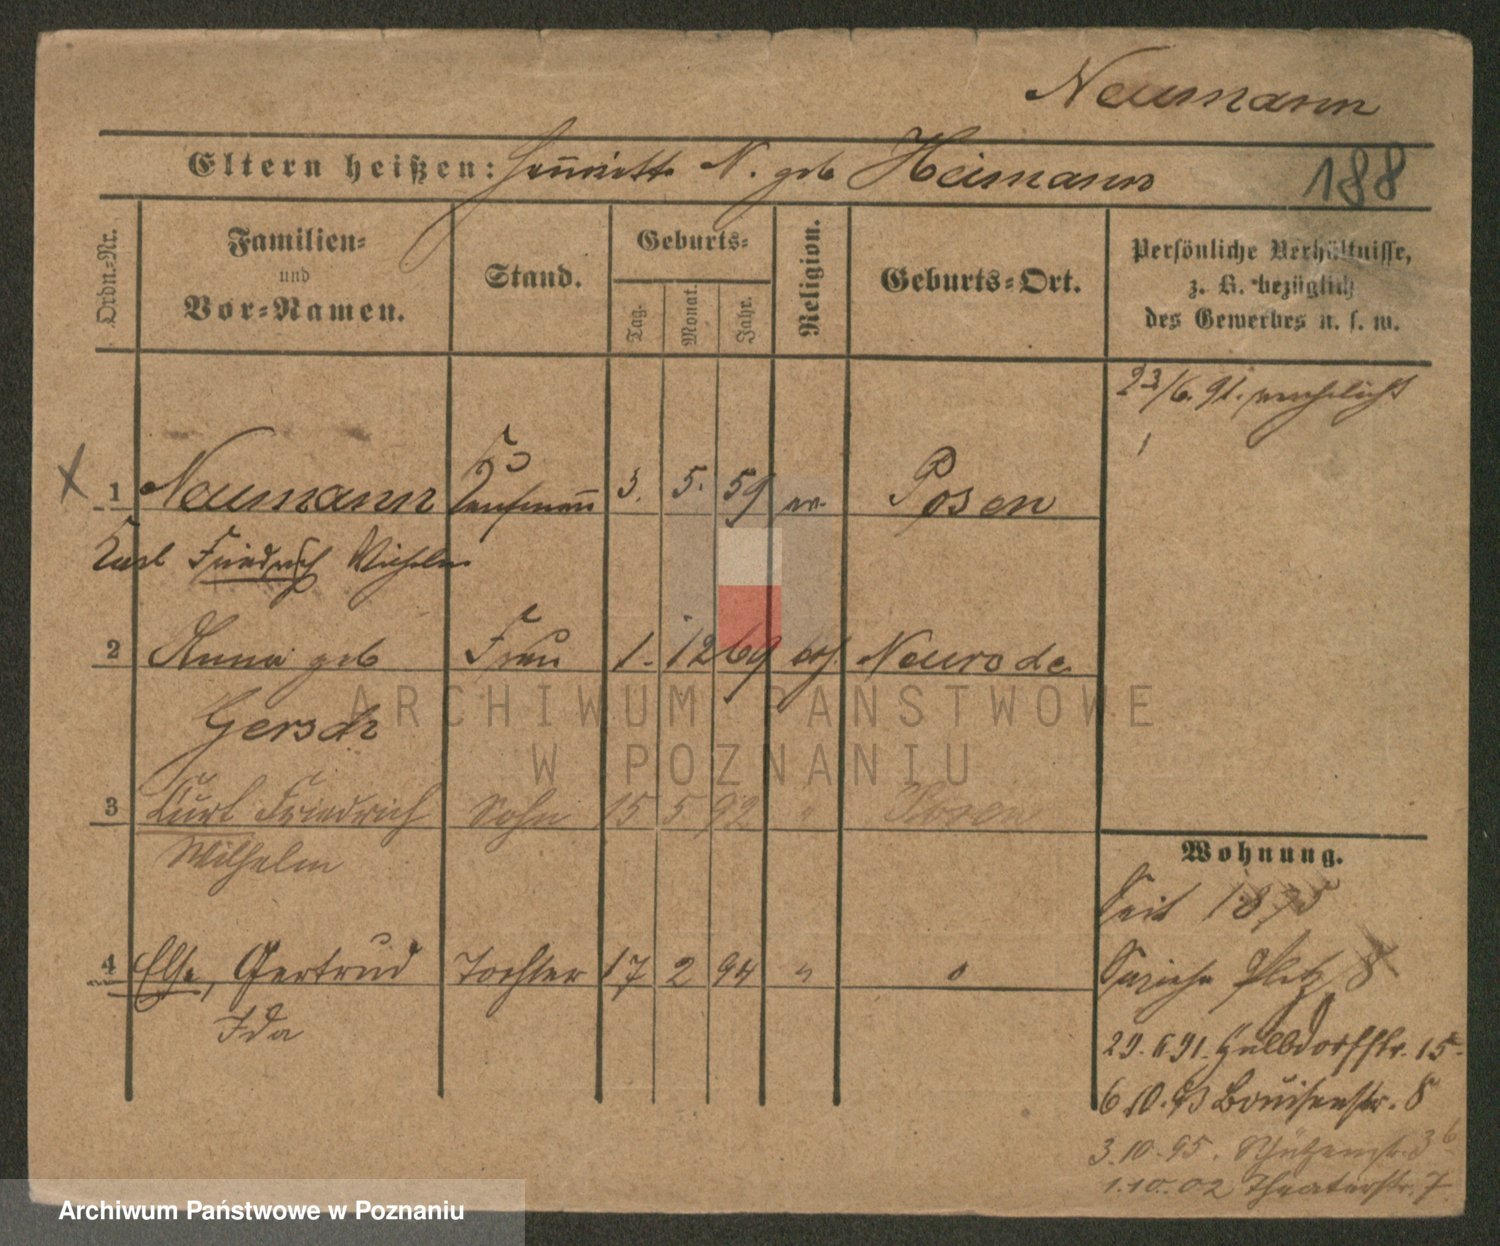 Neumann
Eltern heißen: Henriette N. geb Heimann
188
Ordn.-Nr.
Familien-
und
Vor-Namen.
Stand.
Geburts-
Tag.
Monat.
Jahr.
Religion.
Geburts-Ort.
Persönliche Verhältnisse,
z. B. bezüglich
des Gewerbes u. s. w.
23/6. 91. verehelicht
1 Neumann Kaufmann 3. 5. 59 Posen
Karl Friedrich Wilhelm
2 Anna geb Frau 1. 12 69 Neurode
Gersch
3 Curt Friedrich Sohn 15 5 92 " Posen
Wilhelm
4 Else, Gertrud Tochter 17 2 94 "
Ida
Wohnung.
Seit 1875
Sapieha Platz 8
29. 6 91. Halbdorfstr. 15
6 10. 93 Louisenstr. 8
3. 10. 95. Schützenstr. 36
1. 10. 02 Theaterstr. 7
ARCHIWUM PAŃSTWOWE
W POZNANIU
Archiwum Państwowe w Poznaniu